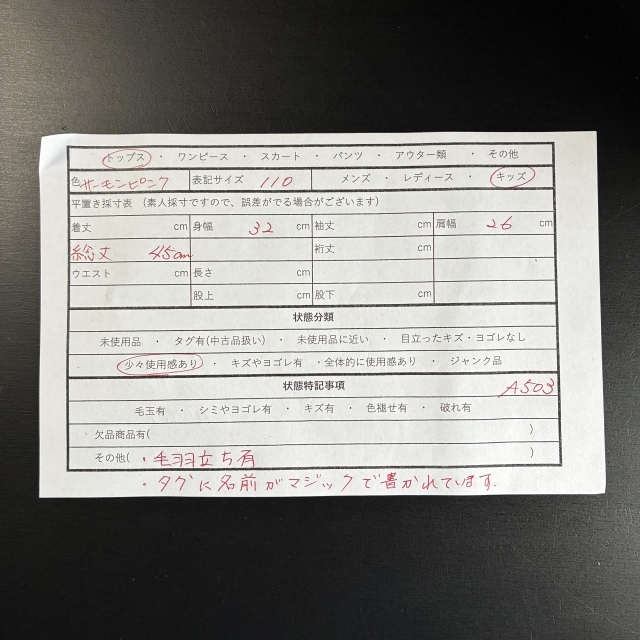 トップス ・ ワンピース ・ スカート ・ パンツ ・ アウター類 ・ その他
色 サーモンピンク 表記サイズ 110 メンズ ・ レディース ・ キッズ
平置き採寸表 (素人採寸ですので、誤差がでる場合がございます)
着丈 cm 身幅 32 cm 袖丈 cm 肩幅 26 cm
総丈 45cm 裄丈 cm
ウエスト cm 長さ cm
股上 cm 股下 cm
状態分類
未使用品 ・ タグ有(中古品扱い) ・ 未使用品に近い ・ 目立ったキズ・ヨゴレなし
少々使用感あり ・ キズやヨゴレ有 ・全体的に使用感あり ・ ジャンク品
状態特記事項 A503
毛玉有 ・ シミやヨゴレ有 ・ キズ有 ・ 色褪せ有 ・ 破れ有
欠品商品有( )
その他( ・毛羽立ち有 )
・タグに名前がマジックで書かれています.